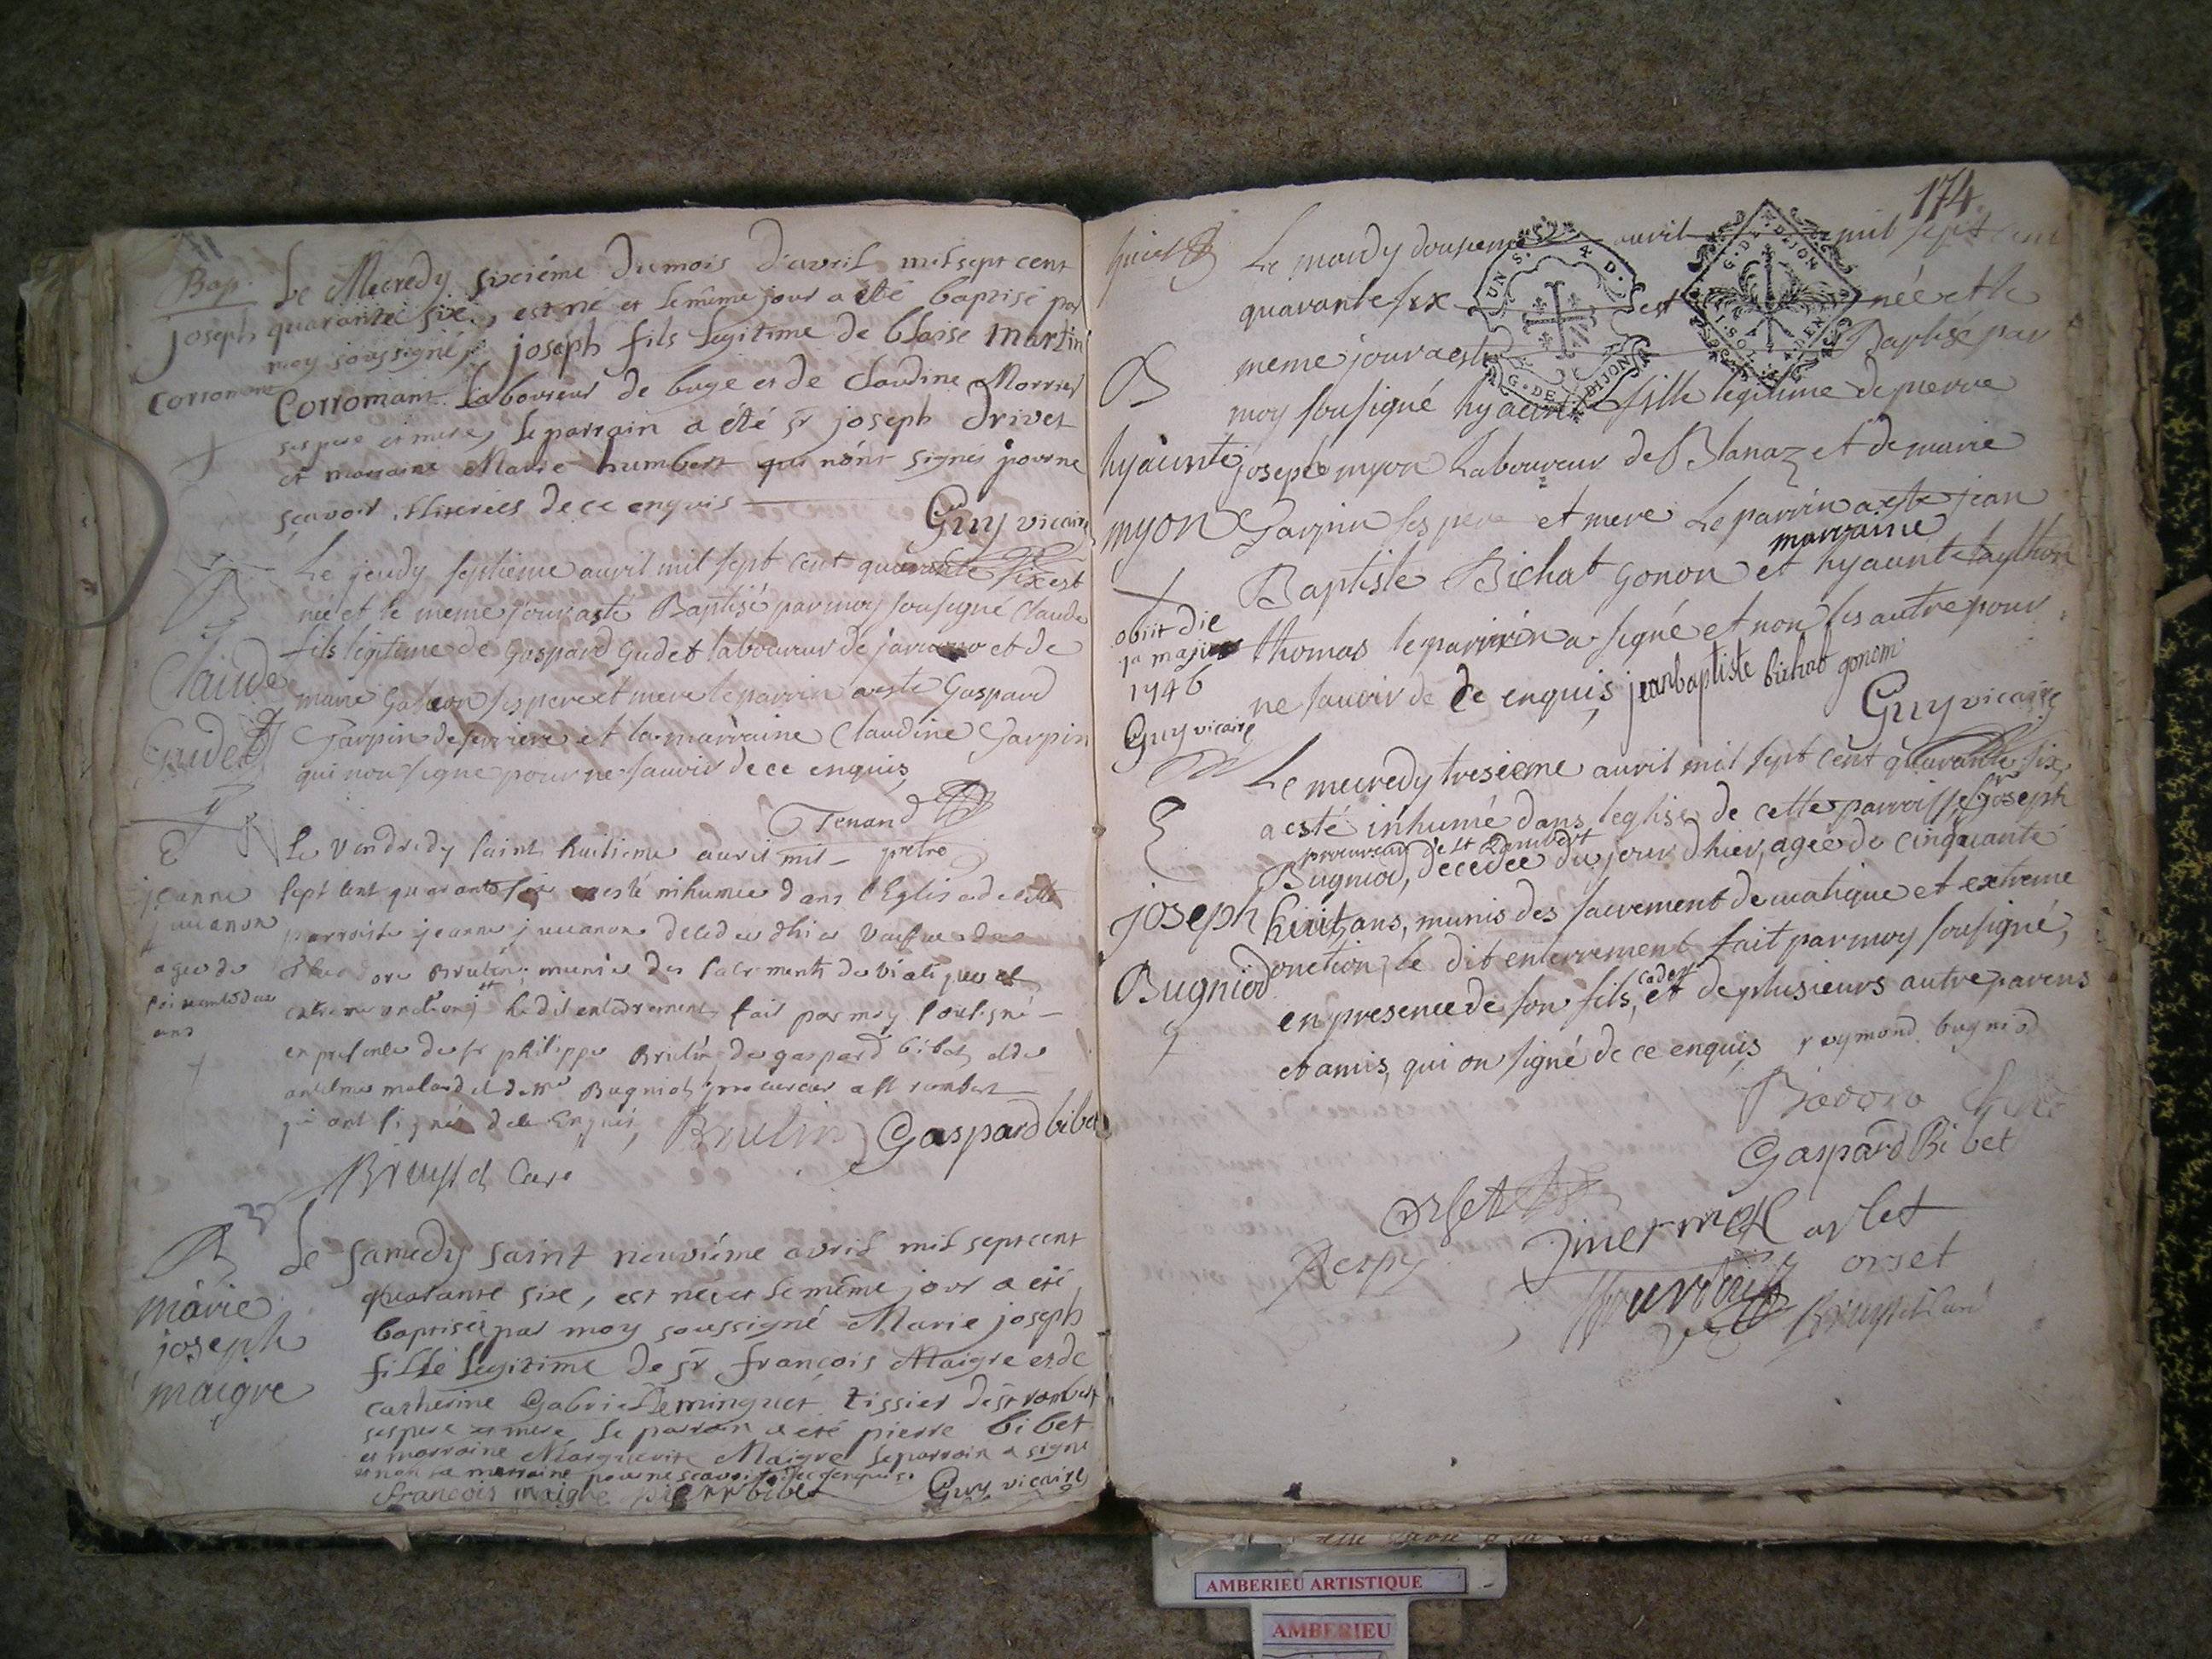 Bap.
joseph
corromant
Le Mecredy sixiéme du mois d'avril mil sept cent
quarante six, est né et le même jour a été baptisé par
moy soussigné, joseph fils legitime de blaise martin
Corromant laboureur de buge et de Claudine Morrier
ses pere et mere, le parrain a été sr joseph drivet
et marraine Marie humbert qui n'ont signés pour ne
sçavoir de ce enquis
Guy vicaire
B
Claude
Gudet
Le jeudy septieme avril mil sept cent quarante six est
née et le meme jour a esté Baptisé par moy sousigné Claude
fils legitime de Gaspard Gudet laboureur de et de
marie ses pere et mere le parrin a esté Gaspard
Garpin de et la marraine Claudine Garpin
qui non signe pour ne sauoir de ce enquis
Tenand
pretre
E
jeanne
juuanon
agee de
soixante deux
ans
Le Vendredy saint huitieme auril mil
sept cent quarante six a esté inhumee dans l'Eglise de cette
parroisse jeanne juuanon decedee dhier Vaefue de
Theodore Brulin, munie des sacrements de Viatique et
extreme onction, le dit enterrement fait par moy sousigné
en presence de sr philippe Brulin, de gaspard bibet, et de
anthelme et de me Bugniod procureur a st rambert
qui ont signés de ce Enquis, Brulin Gaspard bibet
Bruyset Curé
B
marie
joseph
maigre
Le samedy saint neuviéme avril mil sept cent
quarante six, est née et le même jour a été
baptisée par moy soussigné Marie joseph
fille legitime de sr françois Maigre et de
catherine Gabrielle minguet tissier de st rambert
ses pere et mere le parrain a été pierre bibet
et marraine Marguerite Maigre le parrain a signe
et non la marraine pour ne scavoir de ce enquis
francois maigre pierr bibet Guy vicaire
174
UN S. 4 D.
G. DE DIJON
G. D. DIJON
B
hyacinte
myon
obiit die
1a maji
1746
Guy vicaire
Le mardy douzieme avril mil sept cent
quarante six est née et le
meme jour a esté Baptisé par
moy sousigné hyacinte fille legitime de pierre
joseph myon Laboureur de Blanaz et de marie
Garpin ses pere et mere Le parrin a esté jean
marraine
Baptiste Bichat gonon et hyacinte
thomas le parrin a signé et non les autre pour
ne sauoir de de enquis jean baptiste bichat gonon
Guy vicaire
E
joseph
Bugniod
Le mecredy tresieme auril mil sept cent quarante six
a esté inhumé dans leglise de cette parroisse sr joseph
procureur de st Rambert
Bugniod, decedée du jour dhier, agee de cinquante
huit ans, munis des sacrement de uiatique et extreme
onction, le dit enterrement fait par moy sousigné,
cadet
en presence de son fils, et de plusieurs autre parens
et amis, qui on signé de ce enquis reymond bugniod
Gaspard Bibet
orset
arlet
orset
Bruyset Curé
AMBERIEU ARTISTIQUE
AMBERIEU